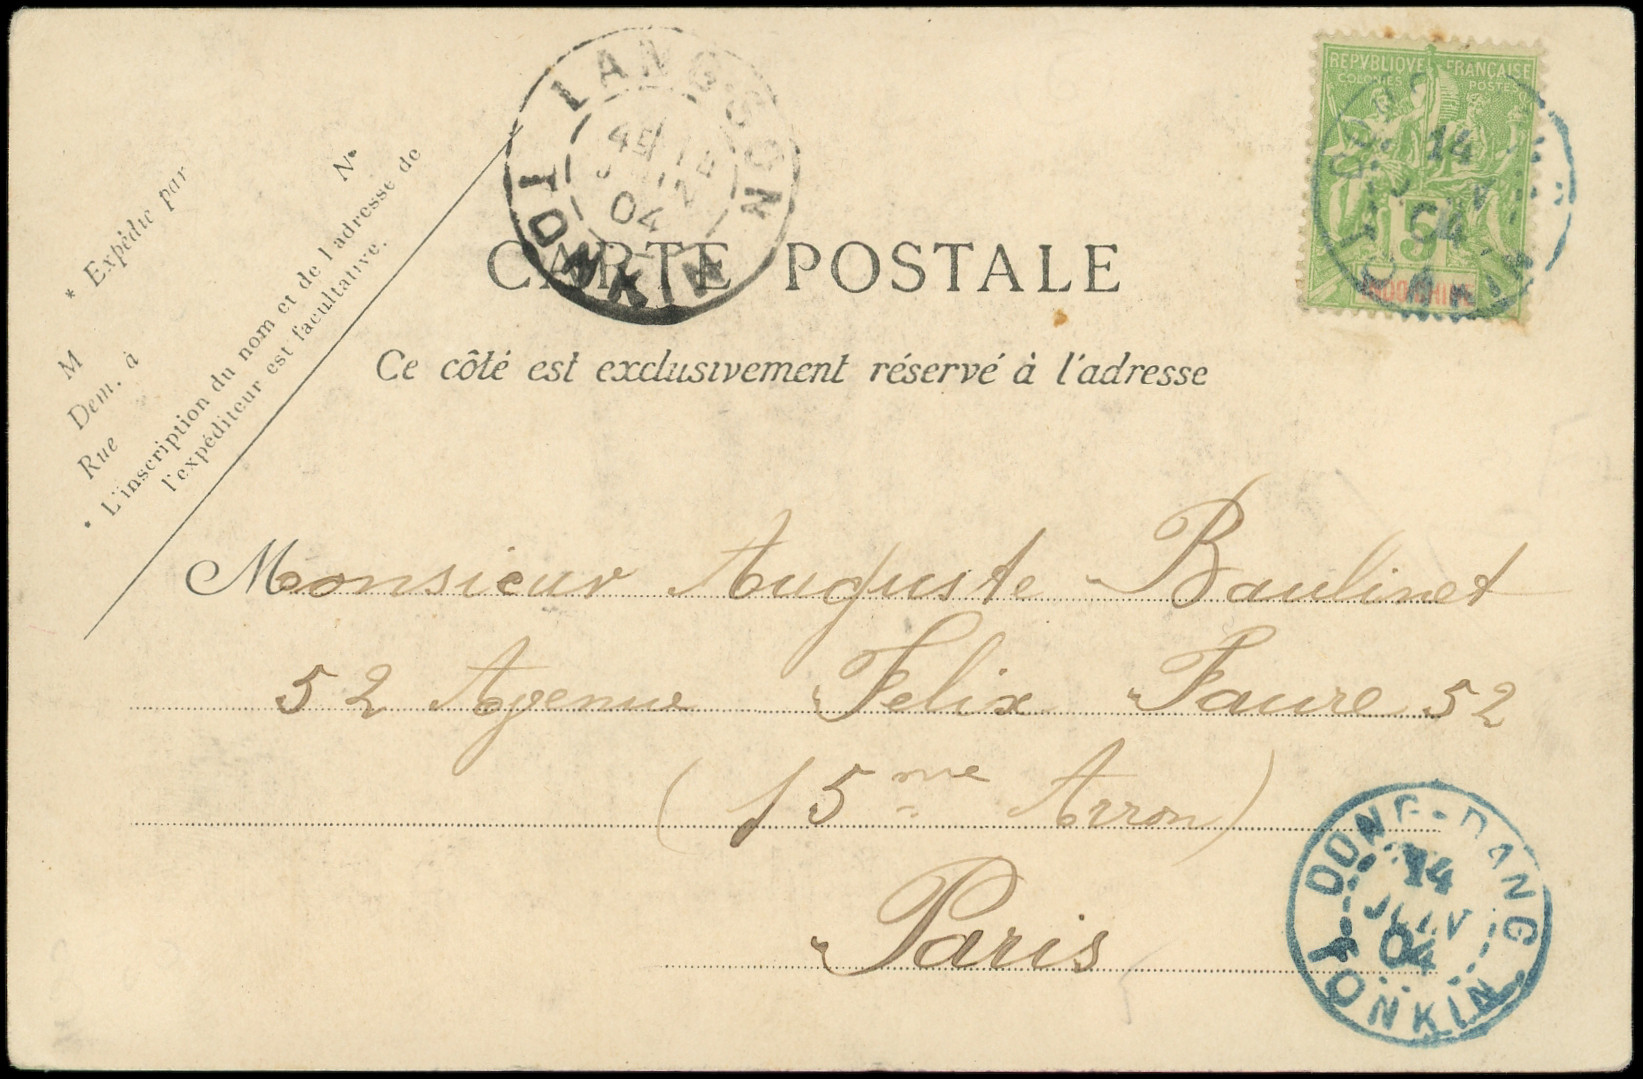 LANGSON
4E 14
JUIN
04
TONKIN
REPVBLIQVE FRANÇAISE
COLONIES POSTES
14
04
TONKIN
5
INDO-CHINE
N°
* Expédié par
M
Dem. à
Rue
* L'inscription du nom et de l'adresse de
l'expéditeur est facultative.
CARTE POSTALE
Ce côté est exclusivement réservé à l'adresse
Monsieur Auguste Baulinet
52 Avenue Felix Faure 52
(15me Arron)
Paris
DONG-DANG
14
JUIN
04
TONKIN